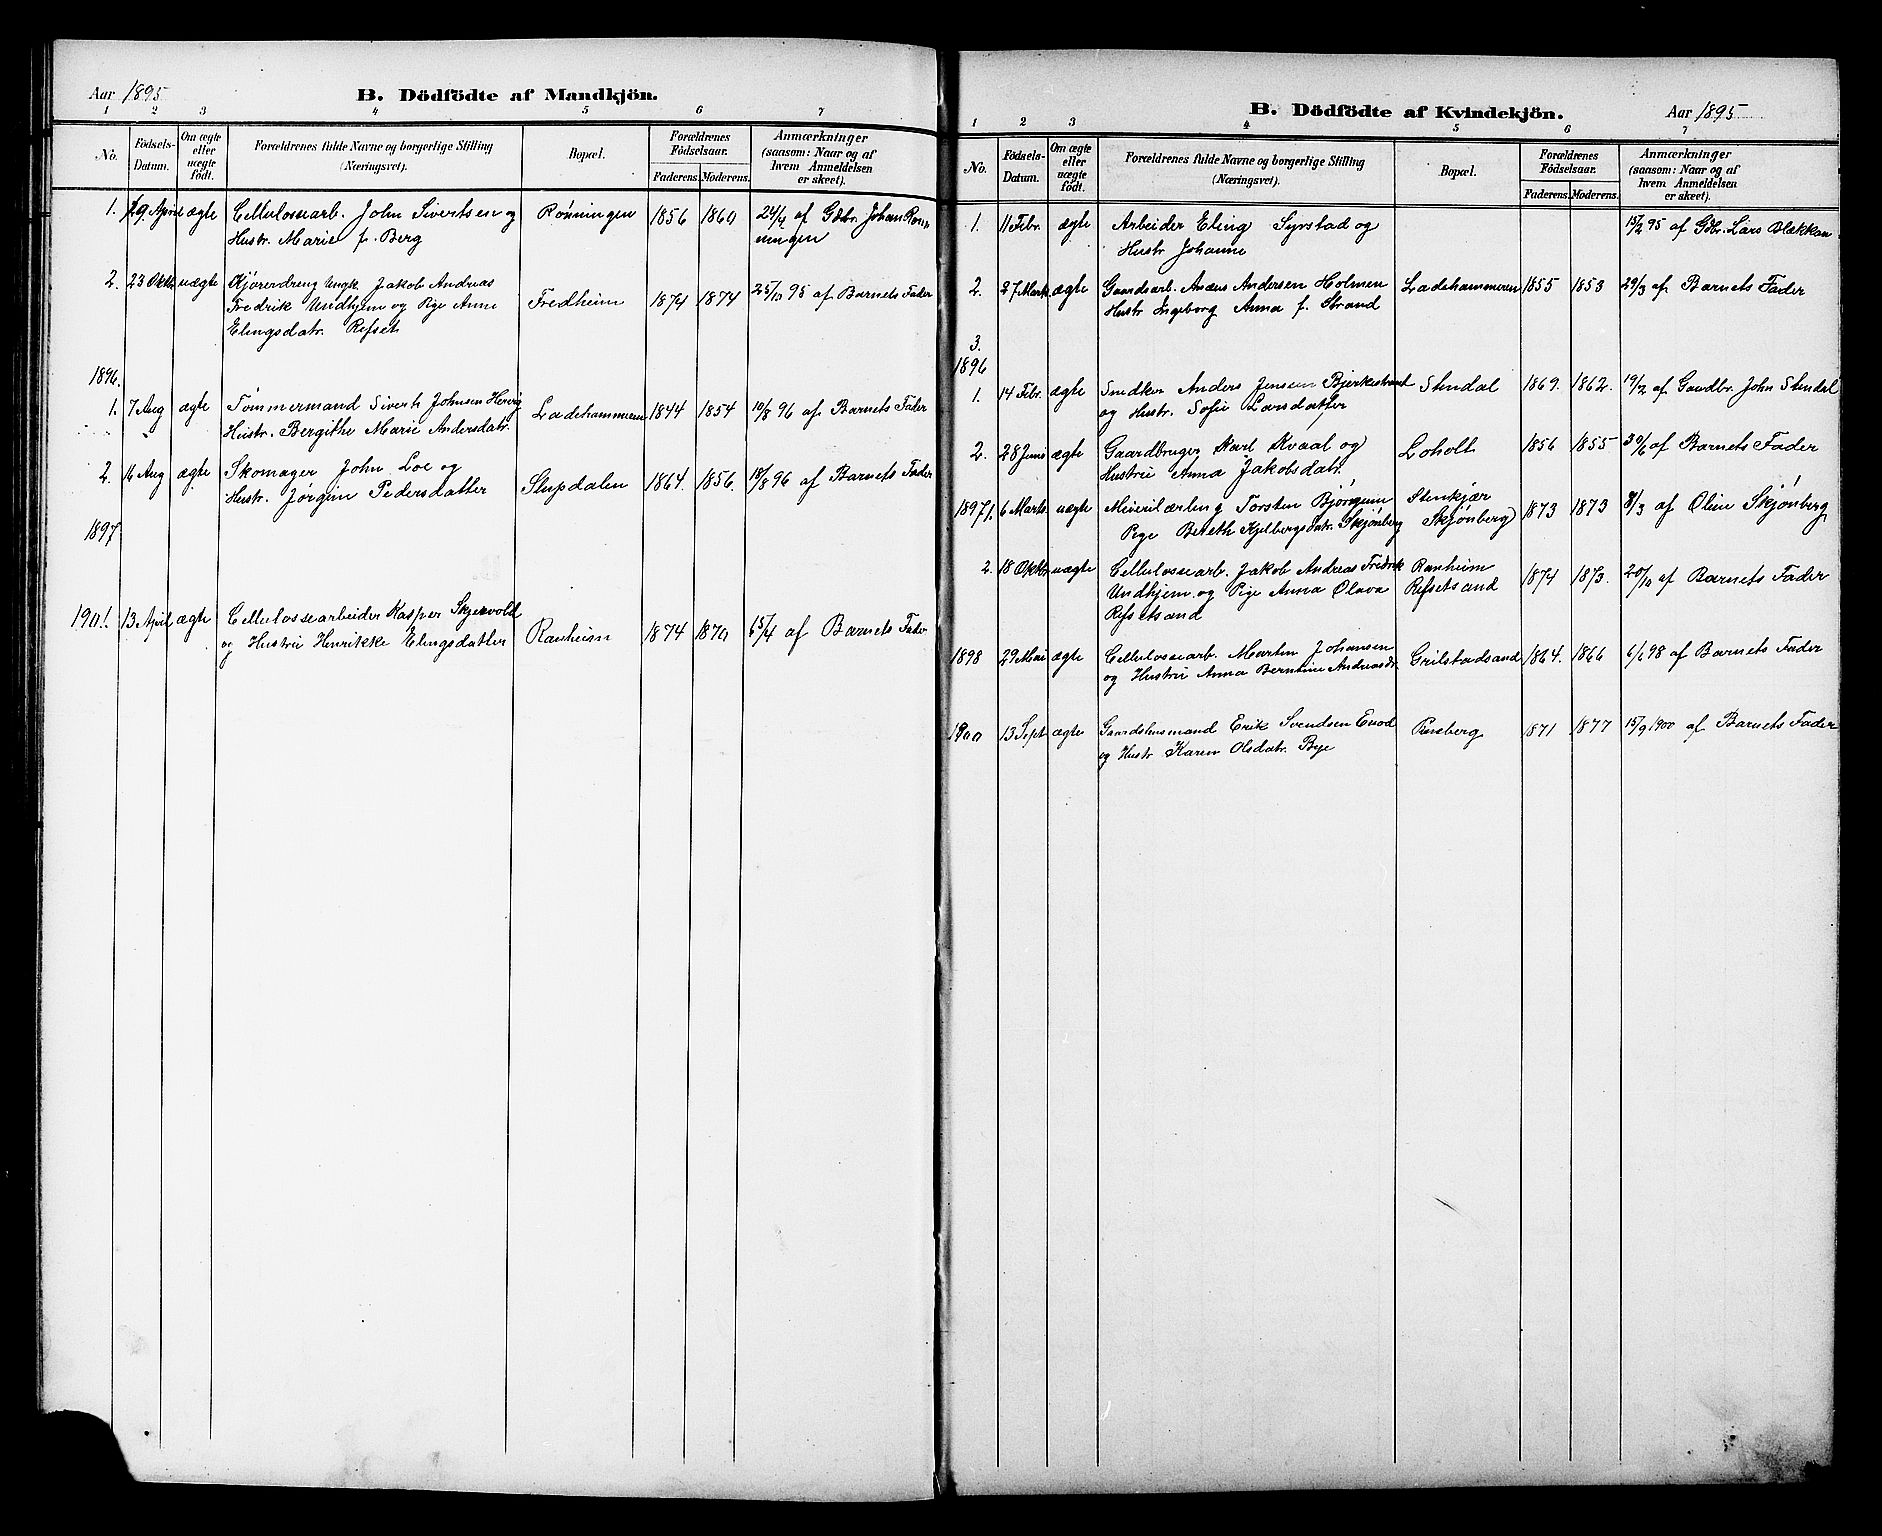 Aar 1895
B. Dödfödte af Mandkjön.
1 2 3 4 5 6 7
No.
Födsels-
Datum.
Om ægte
eller
uægte
født.
Forældrenes fulde Navne og borgerlige Stilling
(Næringsvei).
Bopæl.
Forældrenes
Födselsaar.
Faderens. Moderens.
Anmærkninger
(saasom: Naar og af
hvem Anmeldelsen
er skeet).
1. 19 April ægte Cellulossearb. John Sivertsen og Rønningen 1856 1860 24/4 af Gdbr. Johan Røn-
Hustr. Marie f. Berg ningen
2. 23 Oktb uægte Kjøreredreng Ungk. Jakob Andreas
Fredrik Undhjem og Pige Anna Fredheim 1874 1874 25/10 95 af Barnets Fader
Elingsdatr. Refset
1896.
1. 7 Aug ægte Tømmermand Sivert Johnsen Hervig Ladehammeren 1844 1854 10/8 96 af Barnets Fader
Hustr. Bergithe Marie Andersdatr.
2. 16 Aug ægte Skomager John Loe og Stupdalen 1864. 1856. 18/8 96 af Barnets Fader
Hustr. Jørgine Pedersdatter
1897
1901. 13 April ægte Cellulossearbeider Kasper Skjervold
og Hustru Henrikke Elingsdatter Ranheim 1874 1870 15/4 af Barnets Fader
B. Dödfödte af Kvindekjön.
Aar 1895
1 2 3 4 5 6 7
No.
Födsels-
Datum.
Om ægte
eller
uægte
födt.
Forældrenes fulde Navne og borgerlige Stilling
(Næringsvei).
Bopæl.
Forældrenes
Födselsaar.
Faderens. Moderens.
Anmærkninger
(saasom: Naar og af
hvem Anmeldelsen
er skeet).
1. 11 Febr. ægte Arbeider Eling Syrstad og 15/2 95 af Gdbr. Lars Blækkan
Hustr Johanne
2. 27 Marts ægte Gaardsarb. Anders Andersen Holmen Ladehammeren 1855 1853 29/3 af Barnets Fader
Hustr Ingeborg Anna f. Strand
3.
1896
1. 14 Febr. ægte Snedker Anders Jensen Bjerkestrand Stendal 1869. 1862. 19/2 af Gaardbr. John Stendal
og Hustr. Sofie Larsdatter
2. 28 Juni ægte Gaardbruger Karl Kvaal og Loholt 1856 1855 30/6 af Barnets Fader
Hustru Anna Jakobsdatr.
1897 1. 6 Marts uægte Meierilærling Torsten Bjørgum Stenkjær 1873 1873 8/3 af Oline Skjønberg
Pige Bereth Kjelbergsdatr. Skjønberg Skjønberg
2. 18 Oktbr uægte Cellulossearb. Jakob Andreas Fredrik Ranheim 1874 1873. 20/10 af Barnets Fader
Undhjem og Pige Anna Olava Refsetsand
Refsetsand
1898 29 Mai ægte Cellulossearb. Martin Johansen Grilstadsand 1864. 1866 1/6 98 af Barnets Fader
og Hustru Anna Berntine Andreasdr.
1900 13 Sept ægte Gaardshusmand Erik Svendsen 1871 1877 15/9 1900 af Barnets Fader
og Hustr Karen Olsdatr. Bye